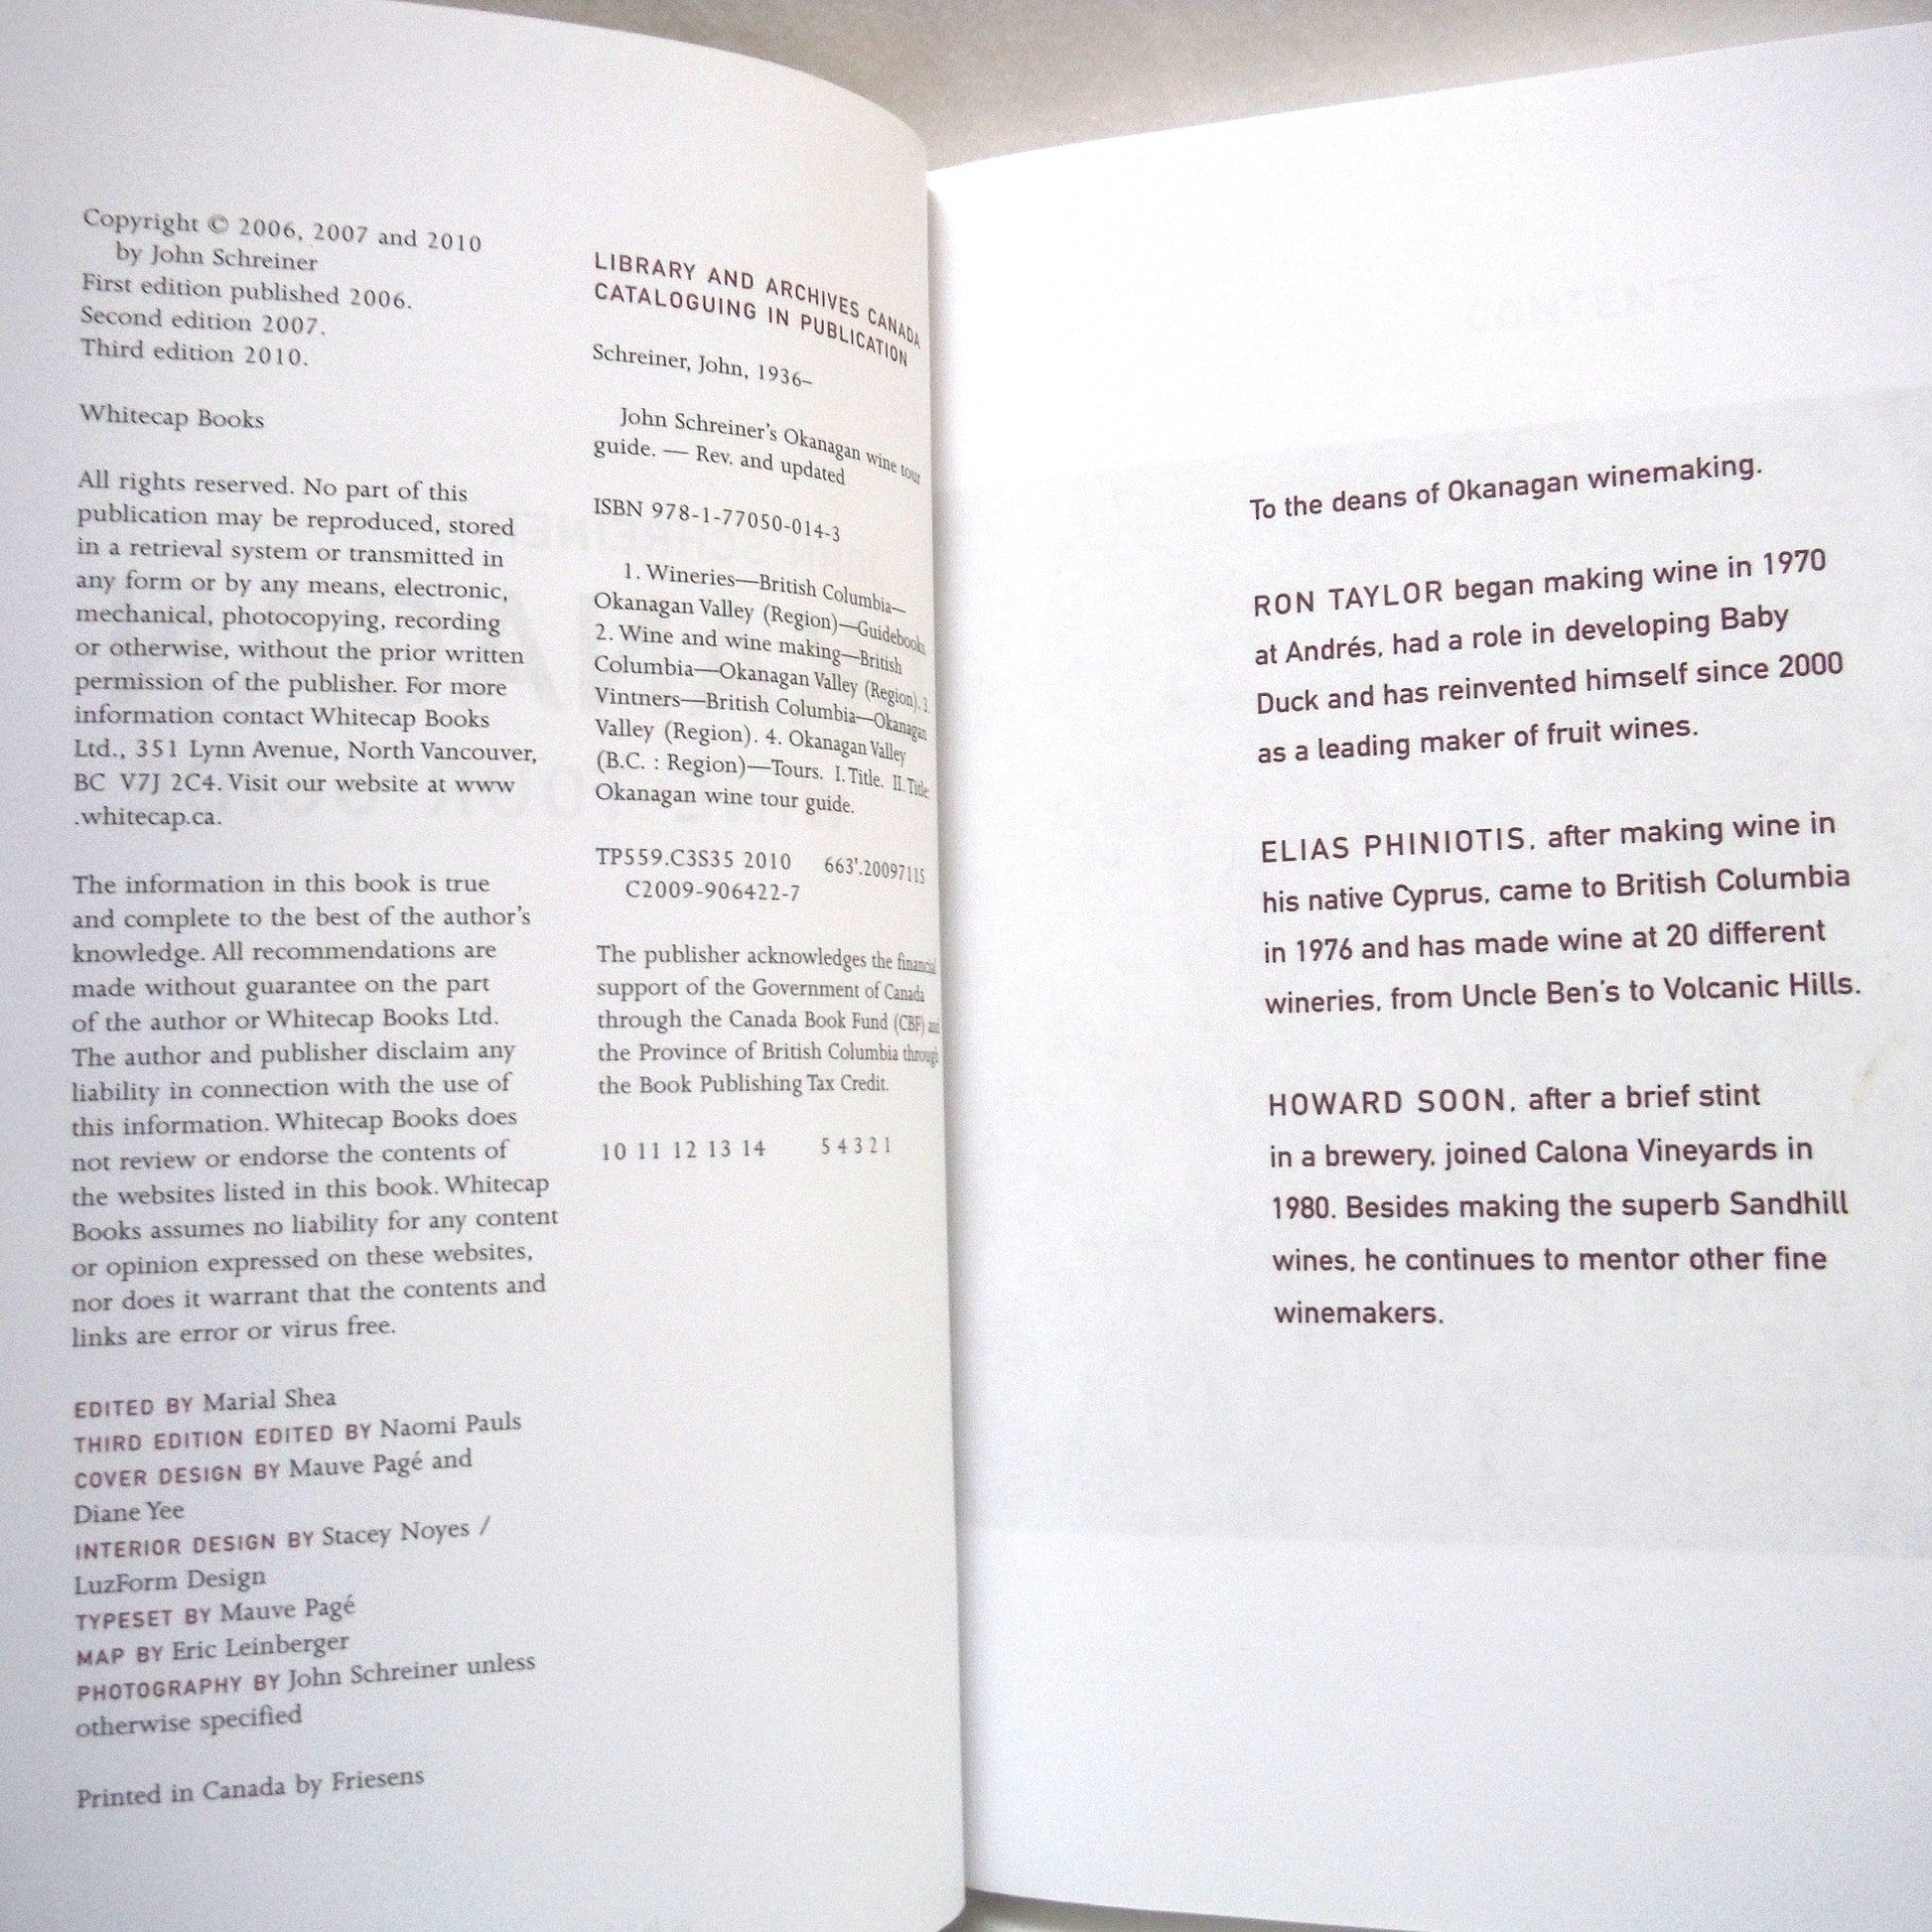 Copyright © 2006, 2007 and 2010
by John Schreiner
First edition published 2006.
Second edition 2007.
Third edition 2010.
Whitecap Books
All rights reserved. No part of this
publication may be reproduced, stored
in a retrieval system or transmitted in
any form or by any means, electronic,
mechanical, photocopying, recording
or otherwise, without the prior written
permission of the publisher. For more
information contact Whitecap Books
Ltd., 351 Lynn Avenue, North Vancouver,
BC V7J 2C4. Visit our website at www
.whitecap.ca.
The information in this book is true
and complete to the best of the author's
knowledge. All recommendations are
made without guarantee on the part
of the author or Whitecap Books Ltd.
The author and publisher disclaim any
liability in connection with the use of
this information. Whitecap Books does
not review or endorse the contents of
the websites listed in this book. Whitecap
Books assumes no liability for any content
or opinion expressed on these websites,
nor does it warrant that the contents and
links are error or virus free.
EDITED BY Marial Shea
THIRD EDITION EDITED BY Naomi Pauls
COVER DESIGN BY Mauve Pagé and
Diane Yee
INTERIOR DESIGN BY Stacey Noyes /
LuzForm Design
TYPESET BY Mauve Pagé
MAP BY Eric Leinberger
PHOTOGRAPHY BY John Schreiner unless
otherwise specified
Printed in Canada by Friesens
LIBRARY AND ARCHIVES CANADA
CATALOGUING IN PUBLICATION
Schreiner, John, 1936–
John Schreiner's Okanagan wine tour
guide. — Rev. and updated
ISBN 978-1-77050-014-3
1. Wineries—British Columbia—
Okanagan Valley (Region)—Guidebooks.
2. Wine and wine making—British
Columbia—Okanagan Valley (Region). 3.
Vintners—British Columbia—Okanagan
Valley (Region). 4. Okanagan Valley
(B.C. : Region)—Tours. I. Title. II. Title:
Okanagan wine tour guide.
TP559.C3S35 2010 663'.20097115
C2009-906422-7
The publisher acknowledges the financial
support of the Government of Canada
through the Canada Book Fund (CBF) and
the Province of British Columbia through
the Book Publishing Tax Credit.
10 11 12 13 14 5 4 3 2 1
To the deans of Okanagan winemaking.
RON TAYLOR began making wine in 1970
at Andrés, had a role in developing Baby
Duck and has reinvented himself since 2000
as a leading maker of fruit wines.
ELIAS PHINIOTIS, after making wine in
his native Cyprus, came to British Columbia
in 1976 and has made wine at 20 different
wineries, from Uncle Ben's to Volcanic Hills.
HOWARD SOON, after a brief stint
in a brewery, joined Calona Vineyards in
1980. Besides making the superb Sandhill
wines, he continues to mentor other fine
winemakers.